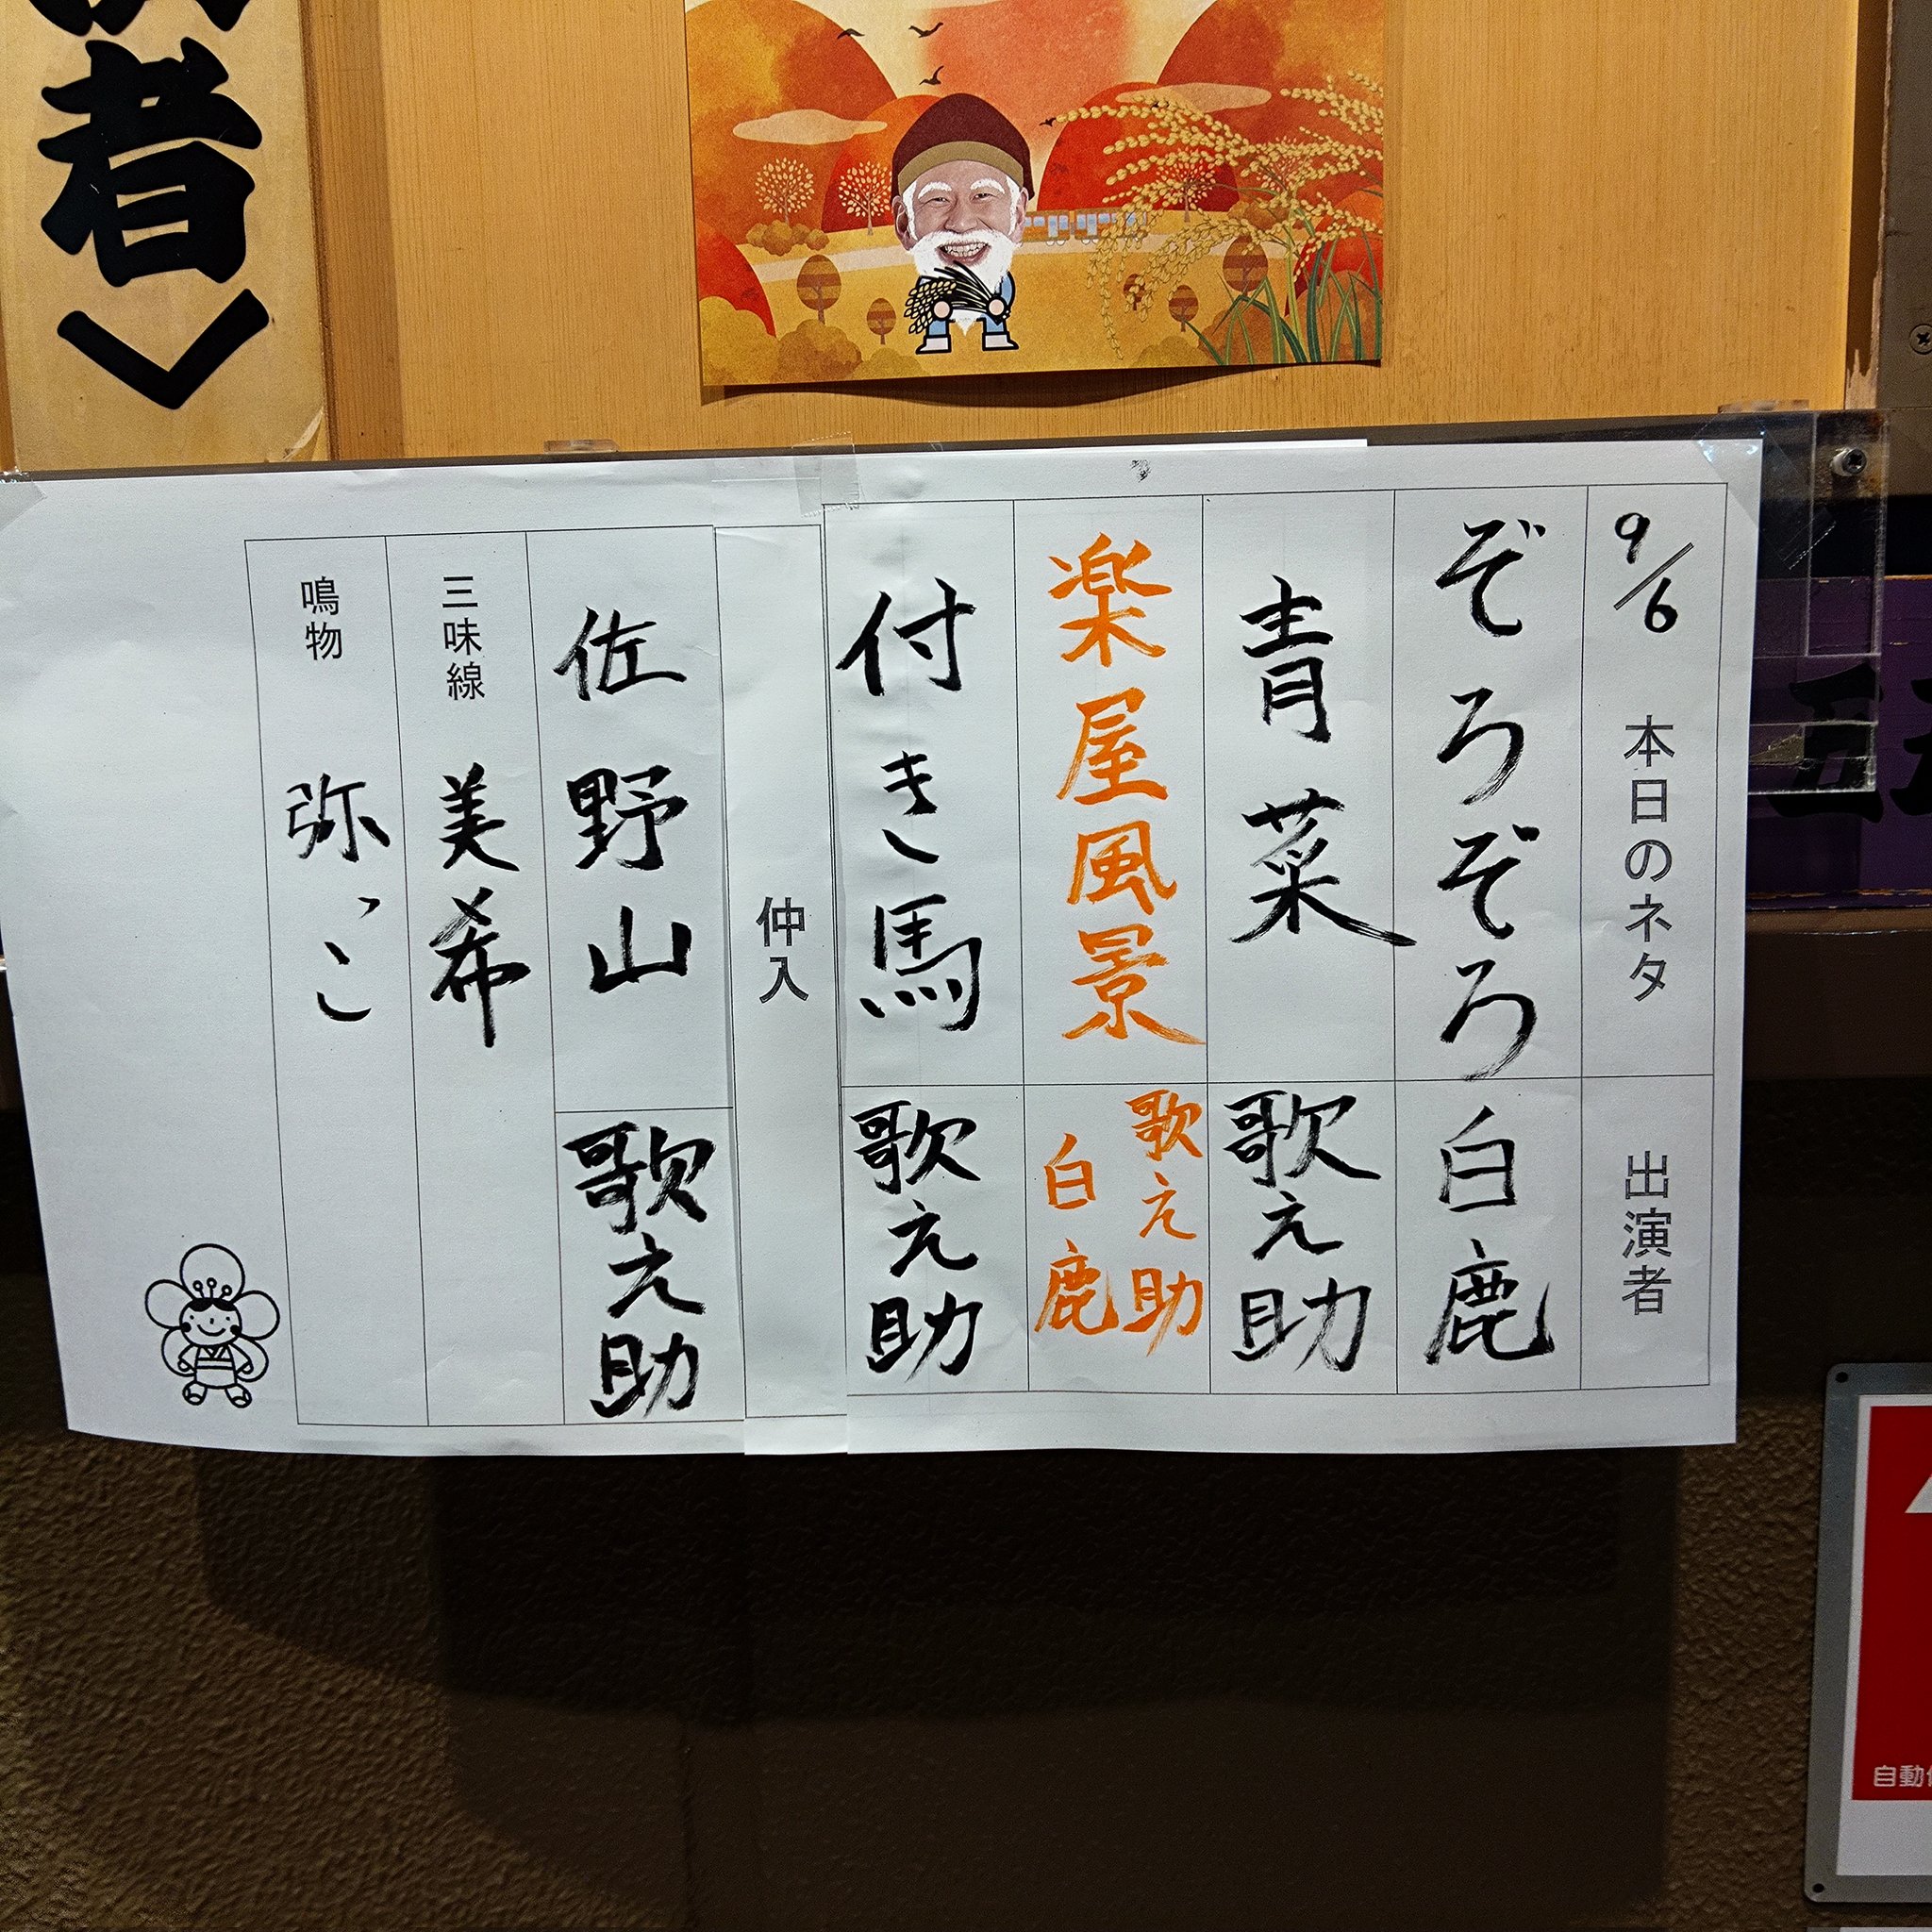 9/6 本日のネタ 出演者
ぞろぞろ 白鹿
青菜 歌之助
楽屋風景 歌之助 白鹿
付き馬 歌之助
仲入
佐野山 歌之助
三味線 美希
鳴物 弥っこ
者
自動